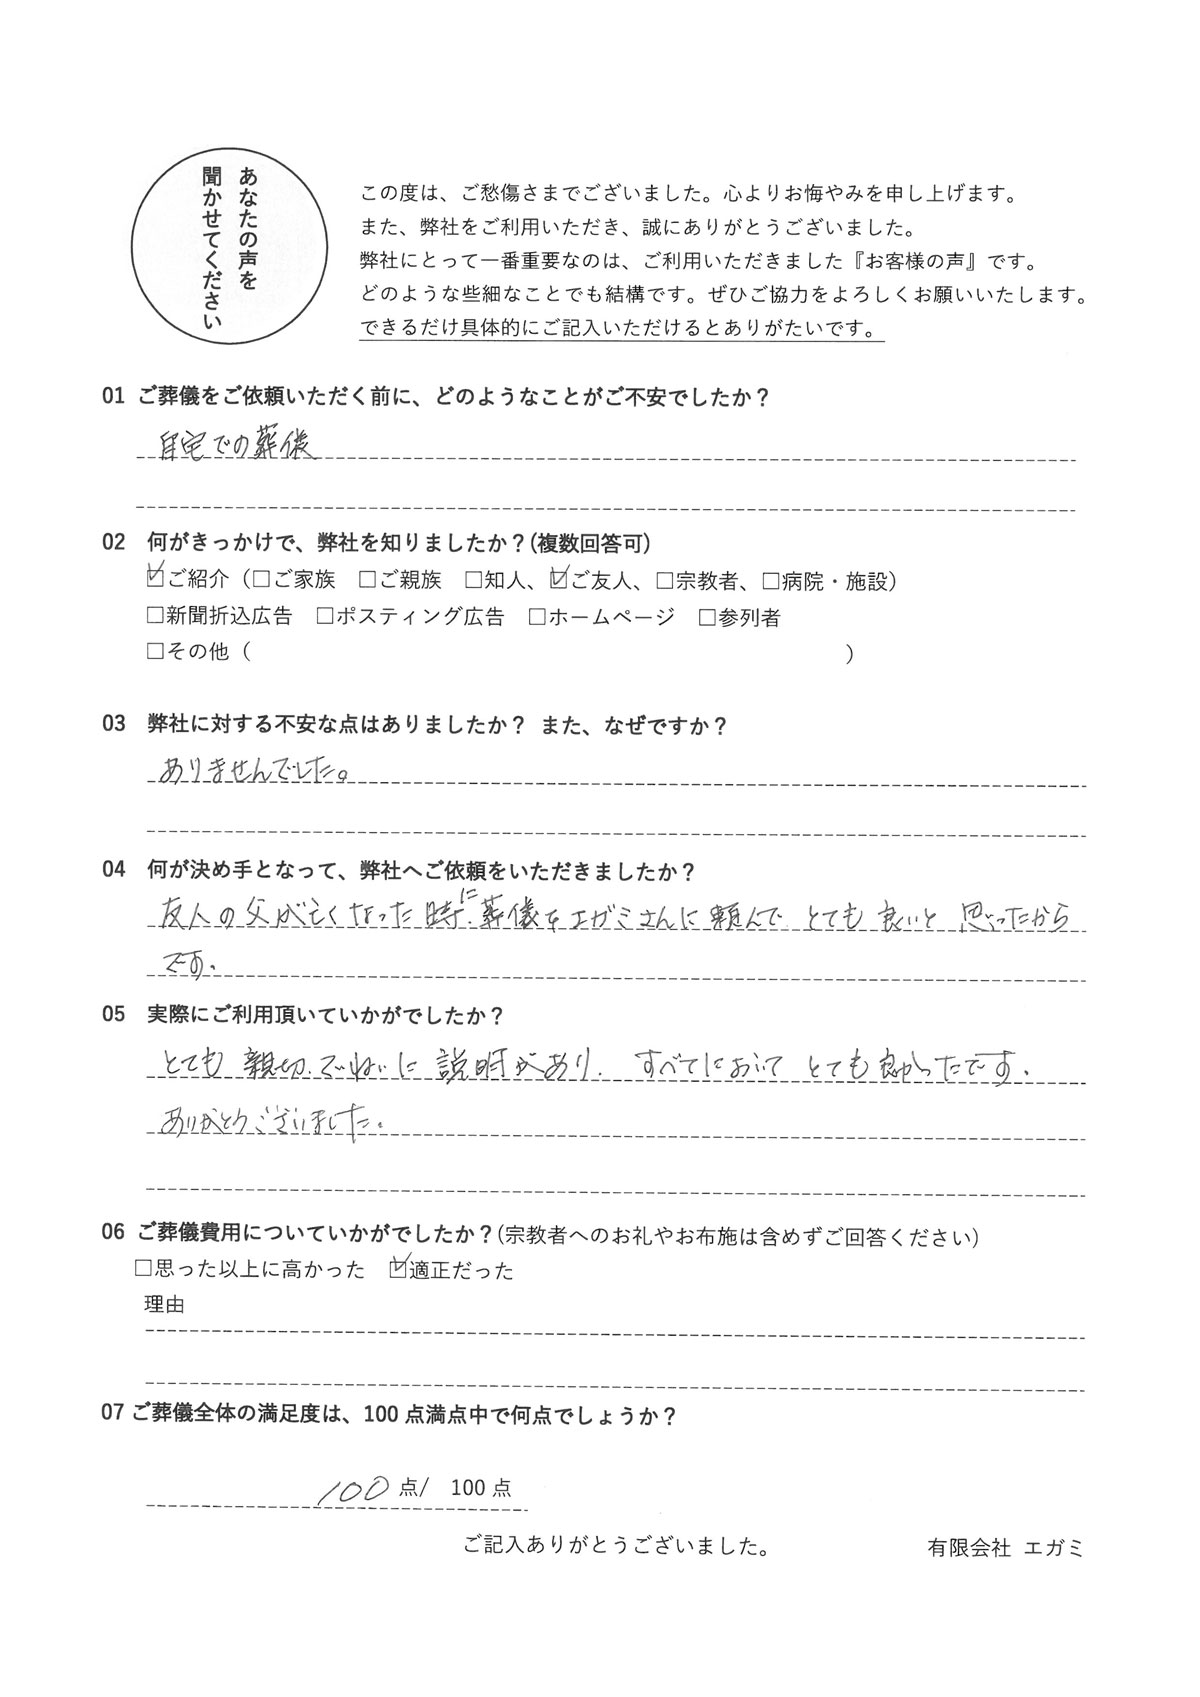 あなたの声を
聞かせてください
この度は、ご愁傷さまでございました。心よりお悔やみを申し上げます。
また、弊社をご利用いただき、誠にありがとうございました。
弊社にとって一番重要なのは、ご利用いただきました『お客様の声』です。
どのような些細なことでも結構です。ぜひご協力をよろしくお願いいたします。
できるだけ具体的にご記入いただけるとありがたいです。
01 ご葬儀をご依頼いただく前に、どのようなことがご不安でしたか？
自宅での葬儀
02 何がきっかけで、弊社を知りましたか？(複数回答可)
☑ご紹介（□ご家族 □ご親族 □知人、☑ご友人、□宗教者、□病院・施設）
□新聞折込広告 □ポスティング広告 □ホームページ □参列者
□その他（ ）
03 弊社に対する不安な点はありましたか？ また、なぜですか？
ありませんでした。
04 何が決め手となって、弊社へご依頼をいただきましたか？
友人の父が亡くなった時に、葬儀をエガミさんに頼んで、とても良いと思ったから
です。
05 実際にご利用頂いていかがでしたか？
とても親切、ていねいに説明があり、すべてにおいてとても良かったです。
ありがとうございました。
06 ご葬儀費用についていかがでしたか？(宗教者へのお礼やお布施は含めずご回答ください)
□思った以上に高かった ☑適正だった
理由
07 ご葬儀全体の満足度は、100 点満点中で何点でしょうか？
100 点/ 100 点
ご記入ありがとうございました。 有限会社 エガミ